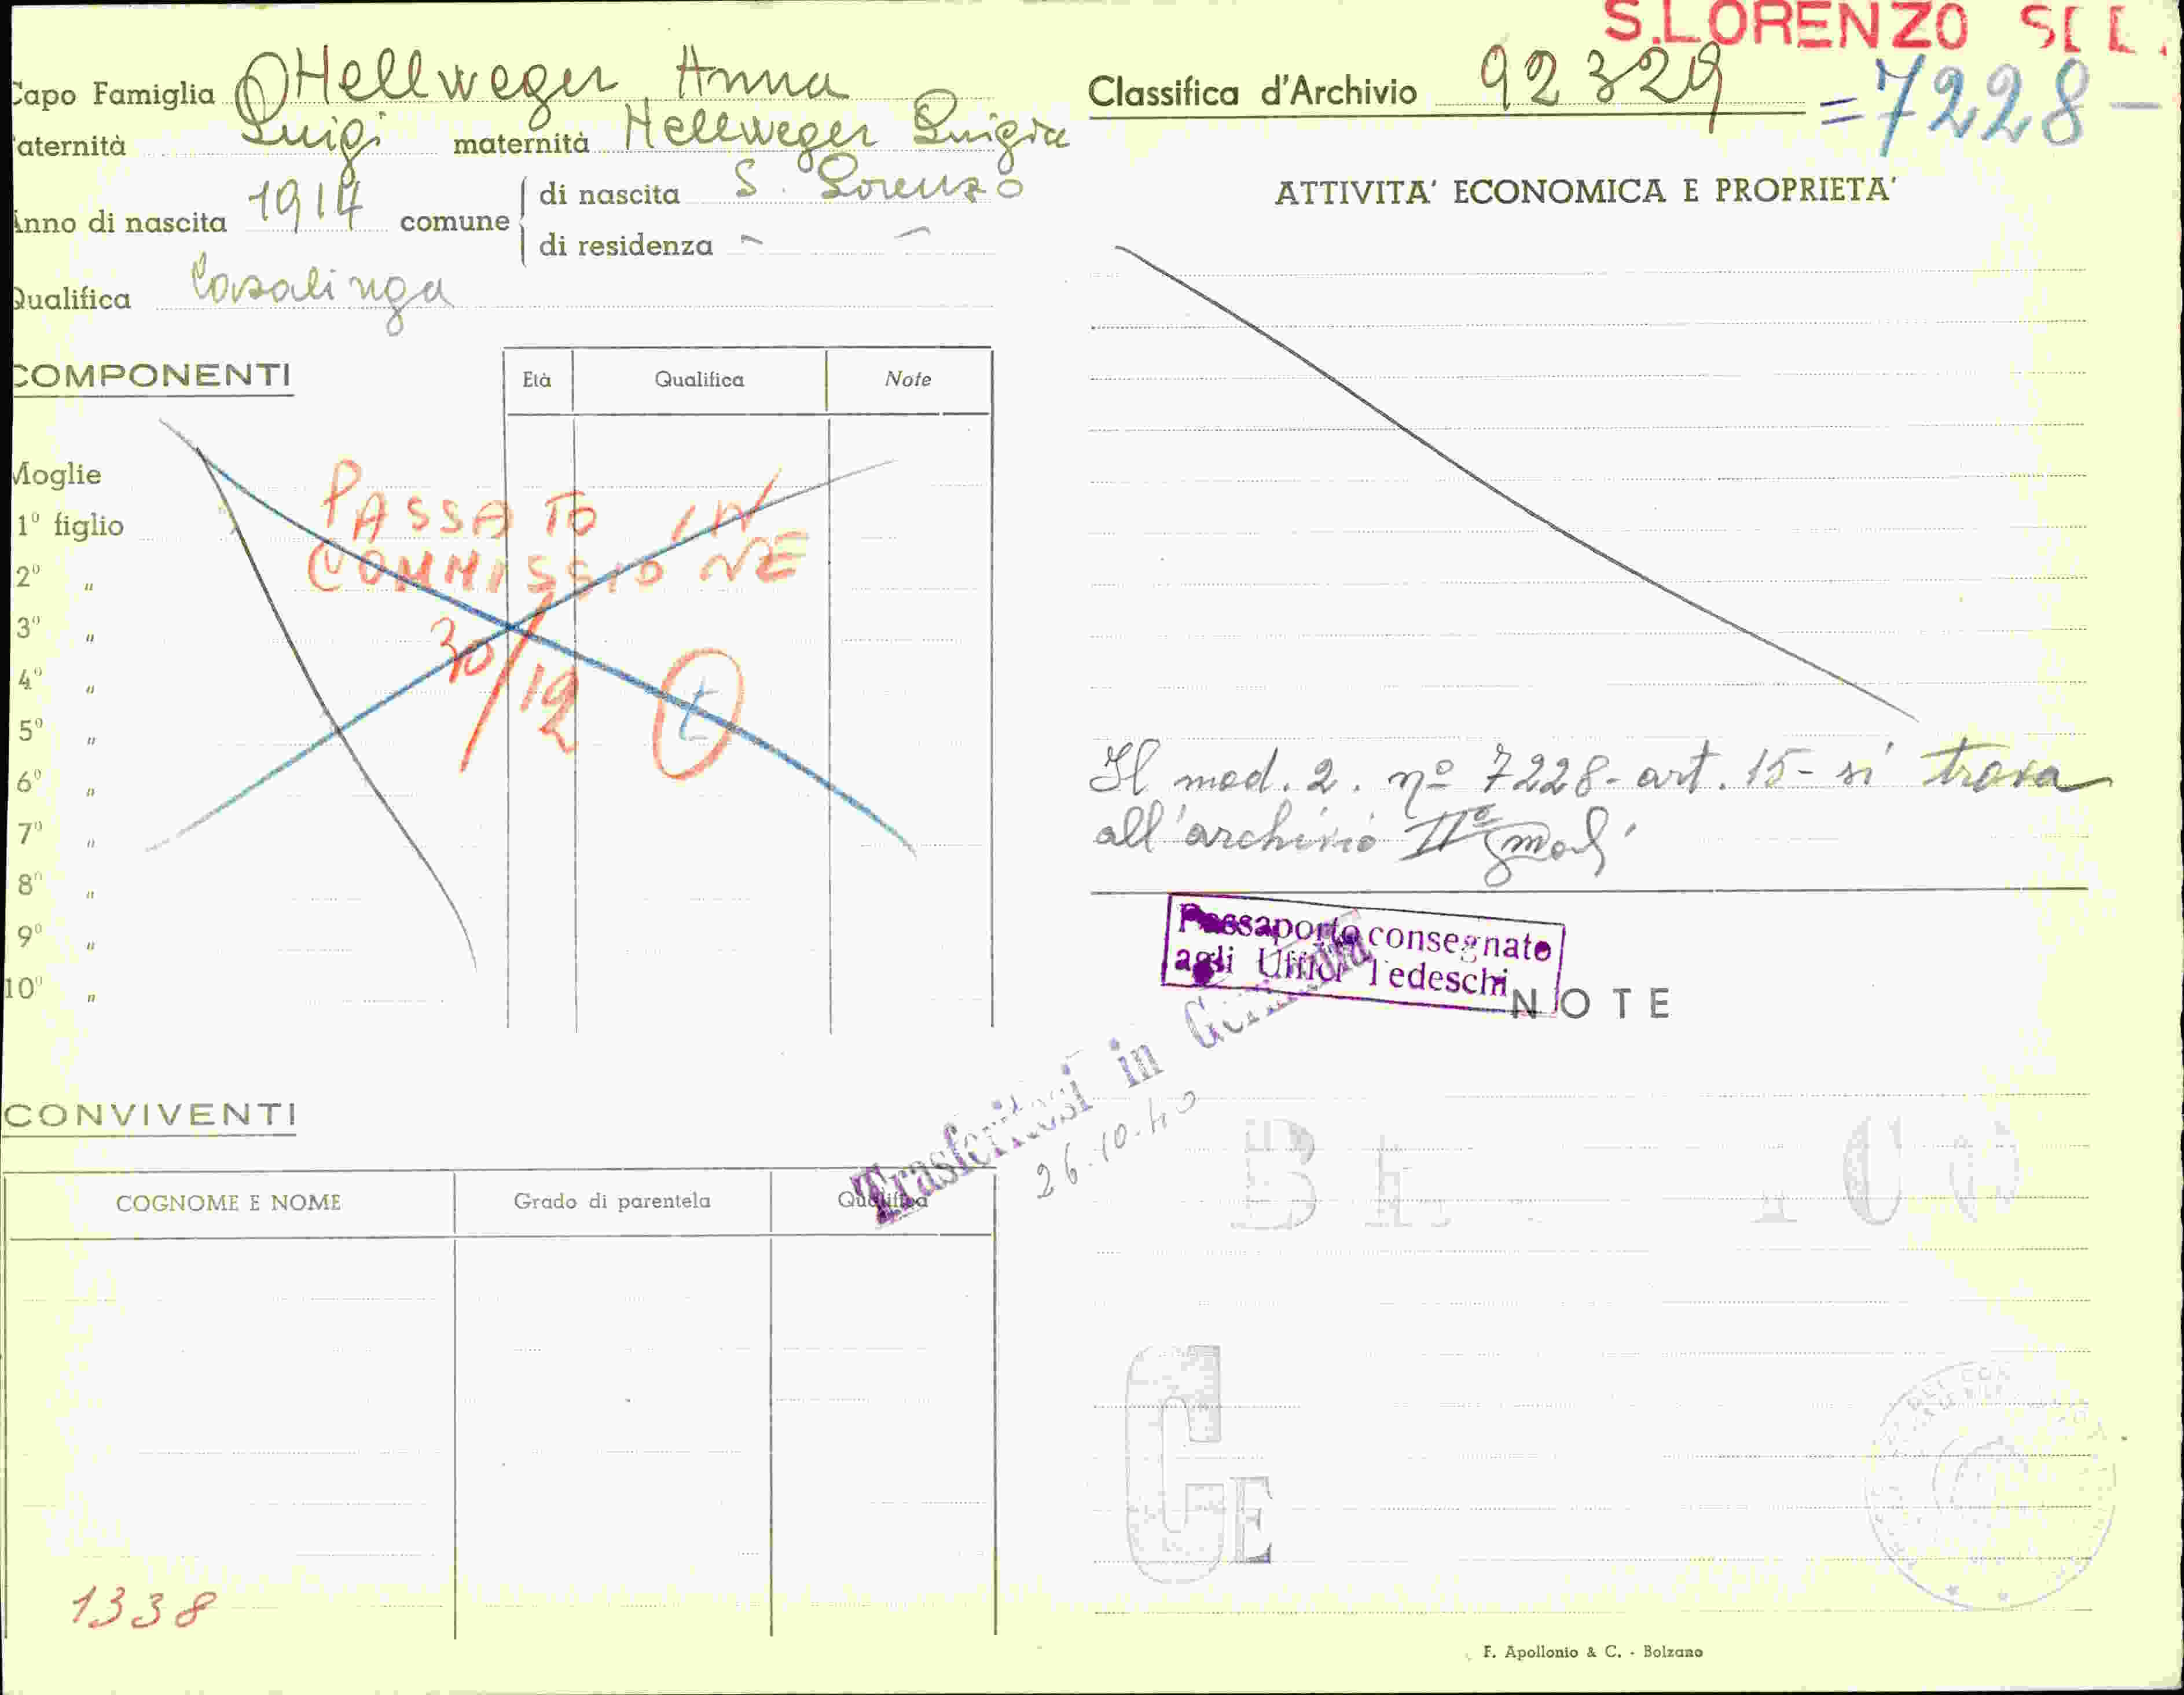 S.LORENZO
Capo Famiglia Hellweger Anna
Paternità Luigi maternità Hellweger Luigia
Anno di nascita 1914 comune di nascita S. Lorenzo
di residenza " "
Qualifica Casalinga
COMPONENTI
Età Qualifica Note
Moglie
1º figlio
2º "
3º "
4º "
5º "
6º "
7º "
8º "
9º "
10º "
PASSATO IN
COMMISSIONE
30/12
t
CONVIVENTI
COGNOME E NOME Grado di parentela Qualifica
1338
Classifica d'Archivio 92329 =7228-
ATTIVITA' ECONOMICA E PROPRIETA'
Il mod. 2. nº 7228- art. 15- si trova
all'archivio IIº
Passaporto consegnato
agli Uffici Tedeschi
NOTE
Trasferitosi in Germania
26.10.40
GE
F. Apollonio & C. - Bolzano